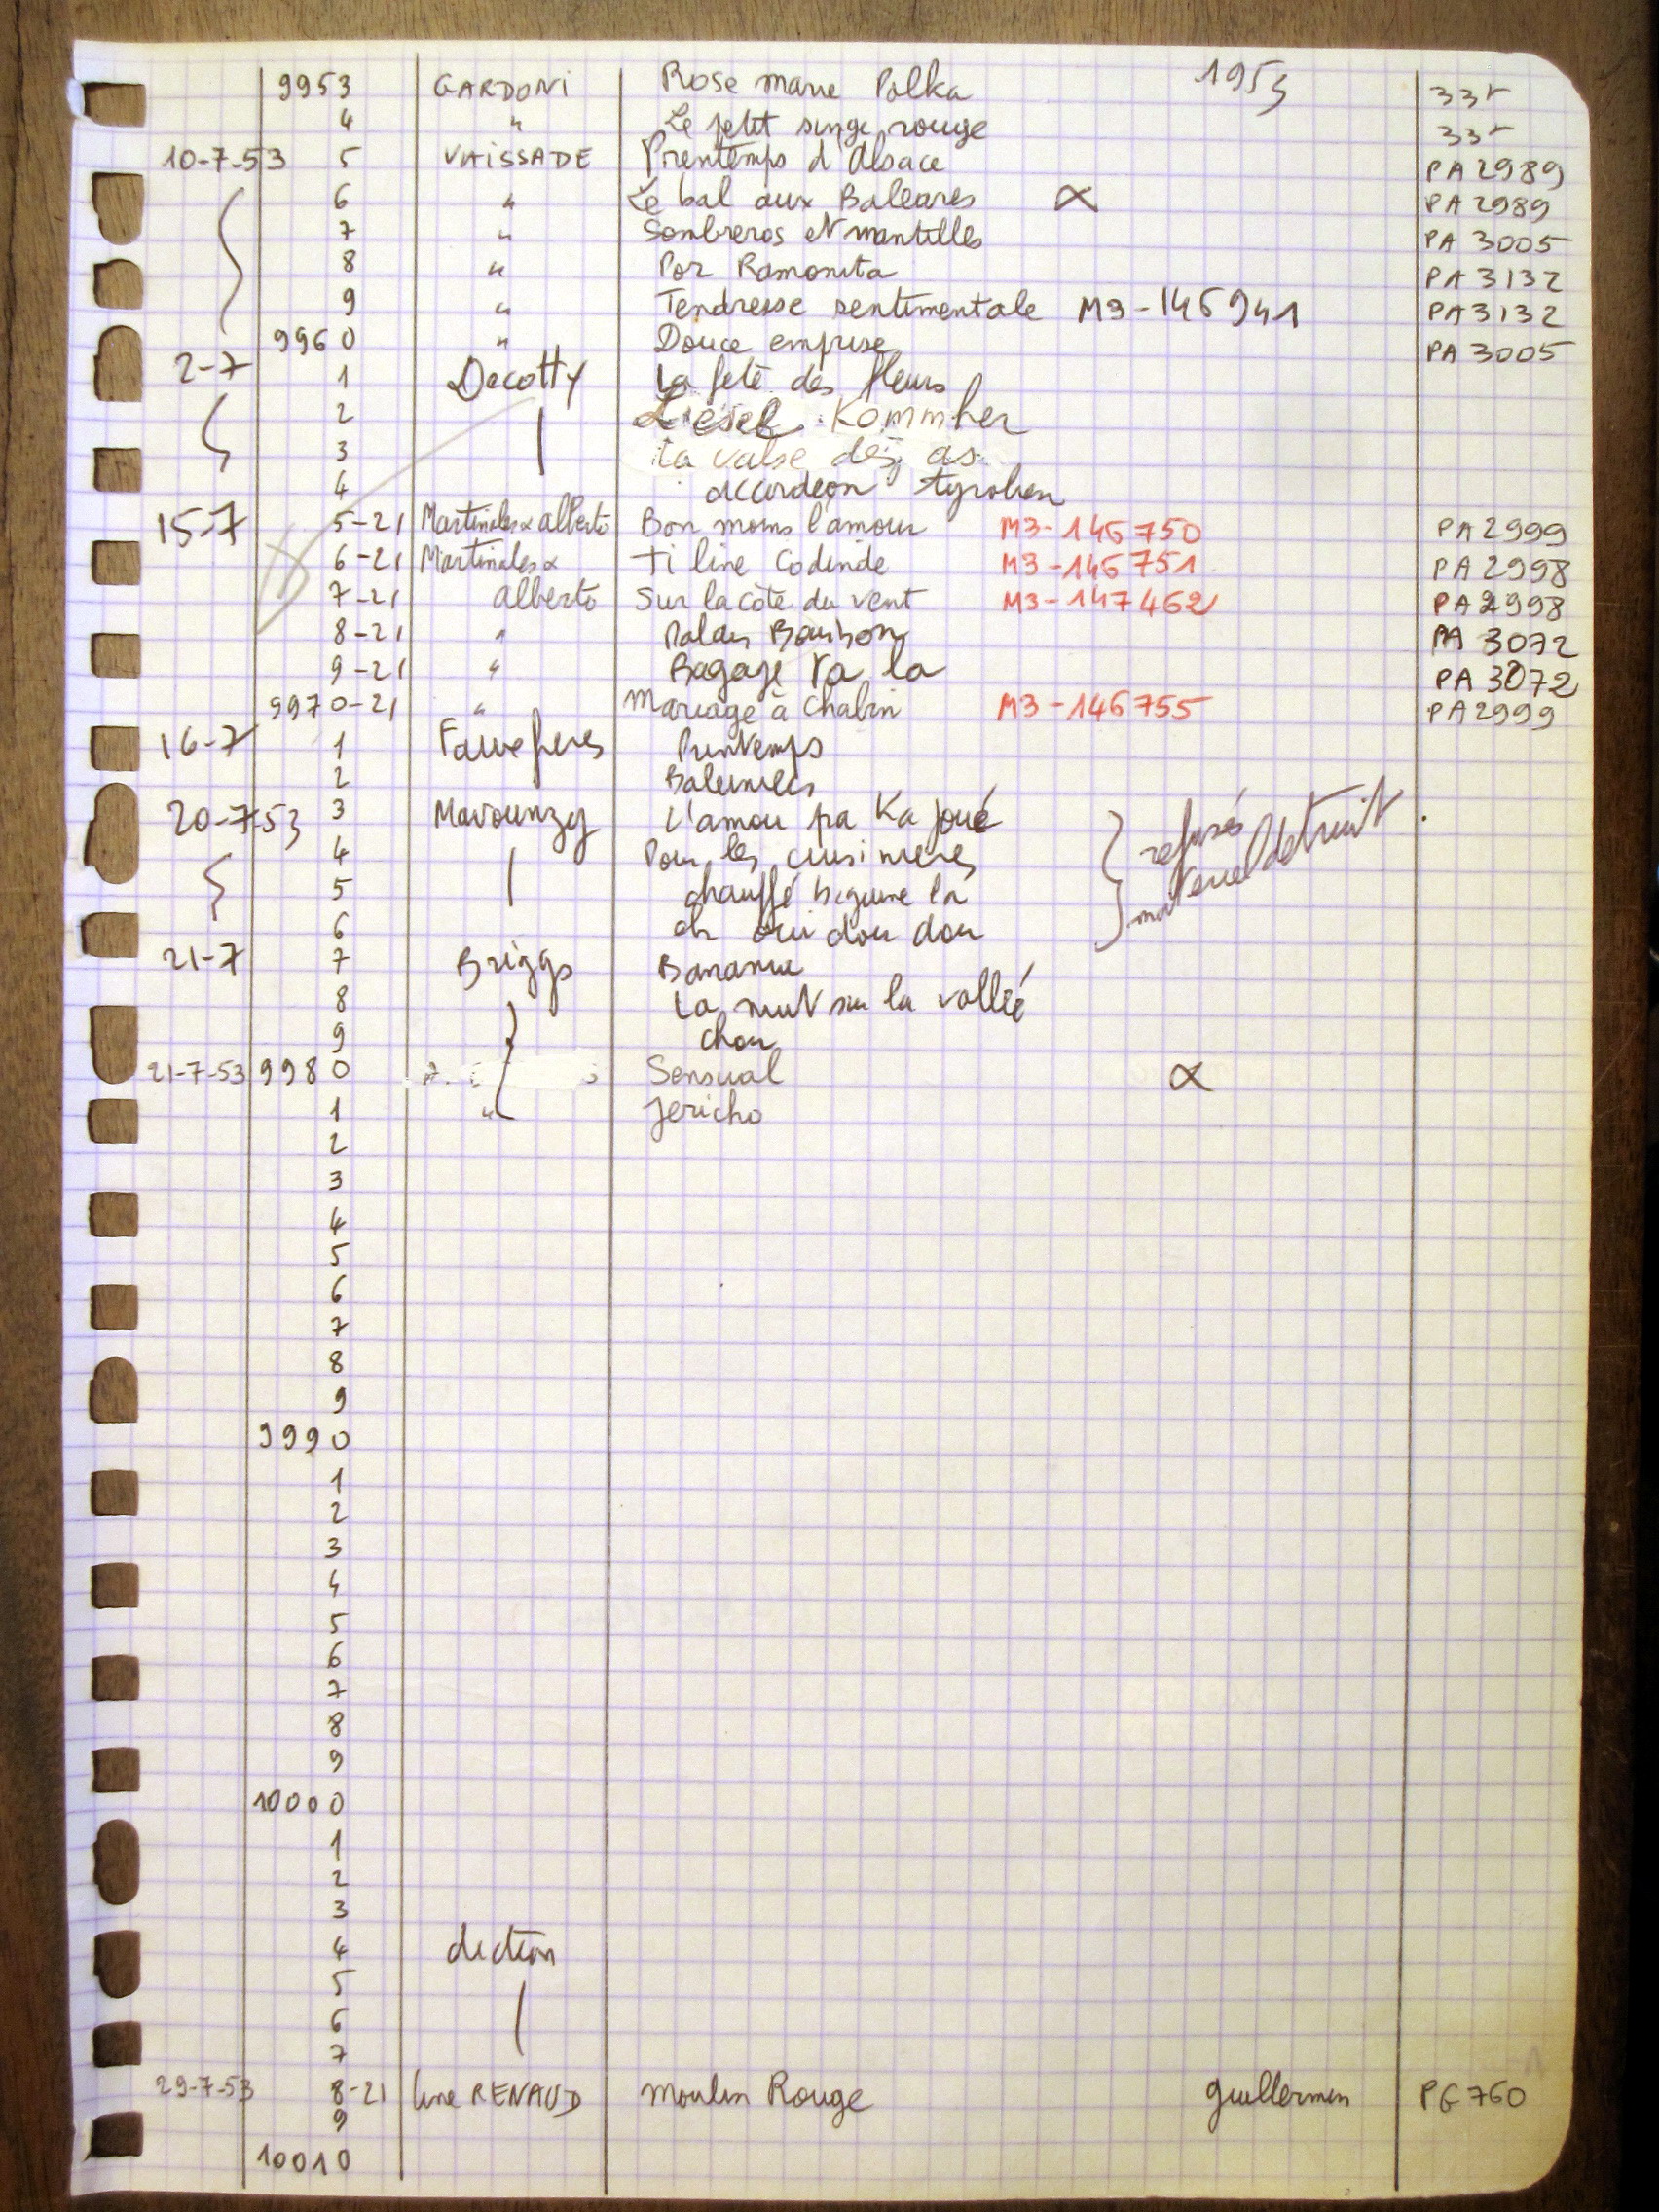 9953 GARDONI Rose marie Polka 1953 33T
4 " Le petit singe rouge 33T
10-7-53 5 VAISSADE Printemps d'Alsace PA 2989
6 " Le bal aux Baleares ∝ PA 2989
7 " Sombreros et mantilles PA 3005
8 " Por Ramonita PA 3132
9 " Tendresse sentimentale M3-146941 PA 3132
9960 " Douce emprise PA 3005
2-7 1 Decotty La fete des fleurs
2 Liesel Kommher
3 La valse des as
4 accordeon tyrolien
15-7 5-21 Martinales & alberto Bon moins l'amour M3-146750 PA 2999
6-21 Martinales & Ti line Codinde M3-146751 PA 2998
7-21 alberto Sur la côte du vent M3-147462 PA 2998
8-21 " Palais Bourbon PA 3072
9-21 " Bagage la PA 3072
9970-21 " Mariage à Chabin M3-146755 PA 2999
16-7 1 Printemps
2
20-7-53 3 Mavounzy L'amou pa Ka joué } refusés
4 Pour les cuisinieres matériel détruit
5 chauffé biguine la
6 oui dou dou
21-7 7 Briggs
8 La nuit sur la vallée
9 Chou
21-7-53 9980 Sensual ∝
1 " Jericho
2
3
4
5
6
7
8
9
9990
1
2
3
4
5
6
7
8
9
10000
1
2
3
4 diction
5
6
7
29-7-53 8-21 line RENAUD Moulin Rouge guillermin PG 760
9
10010